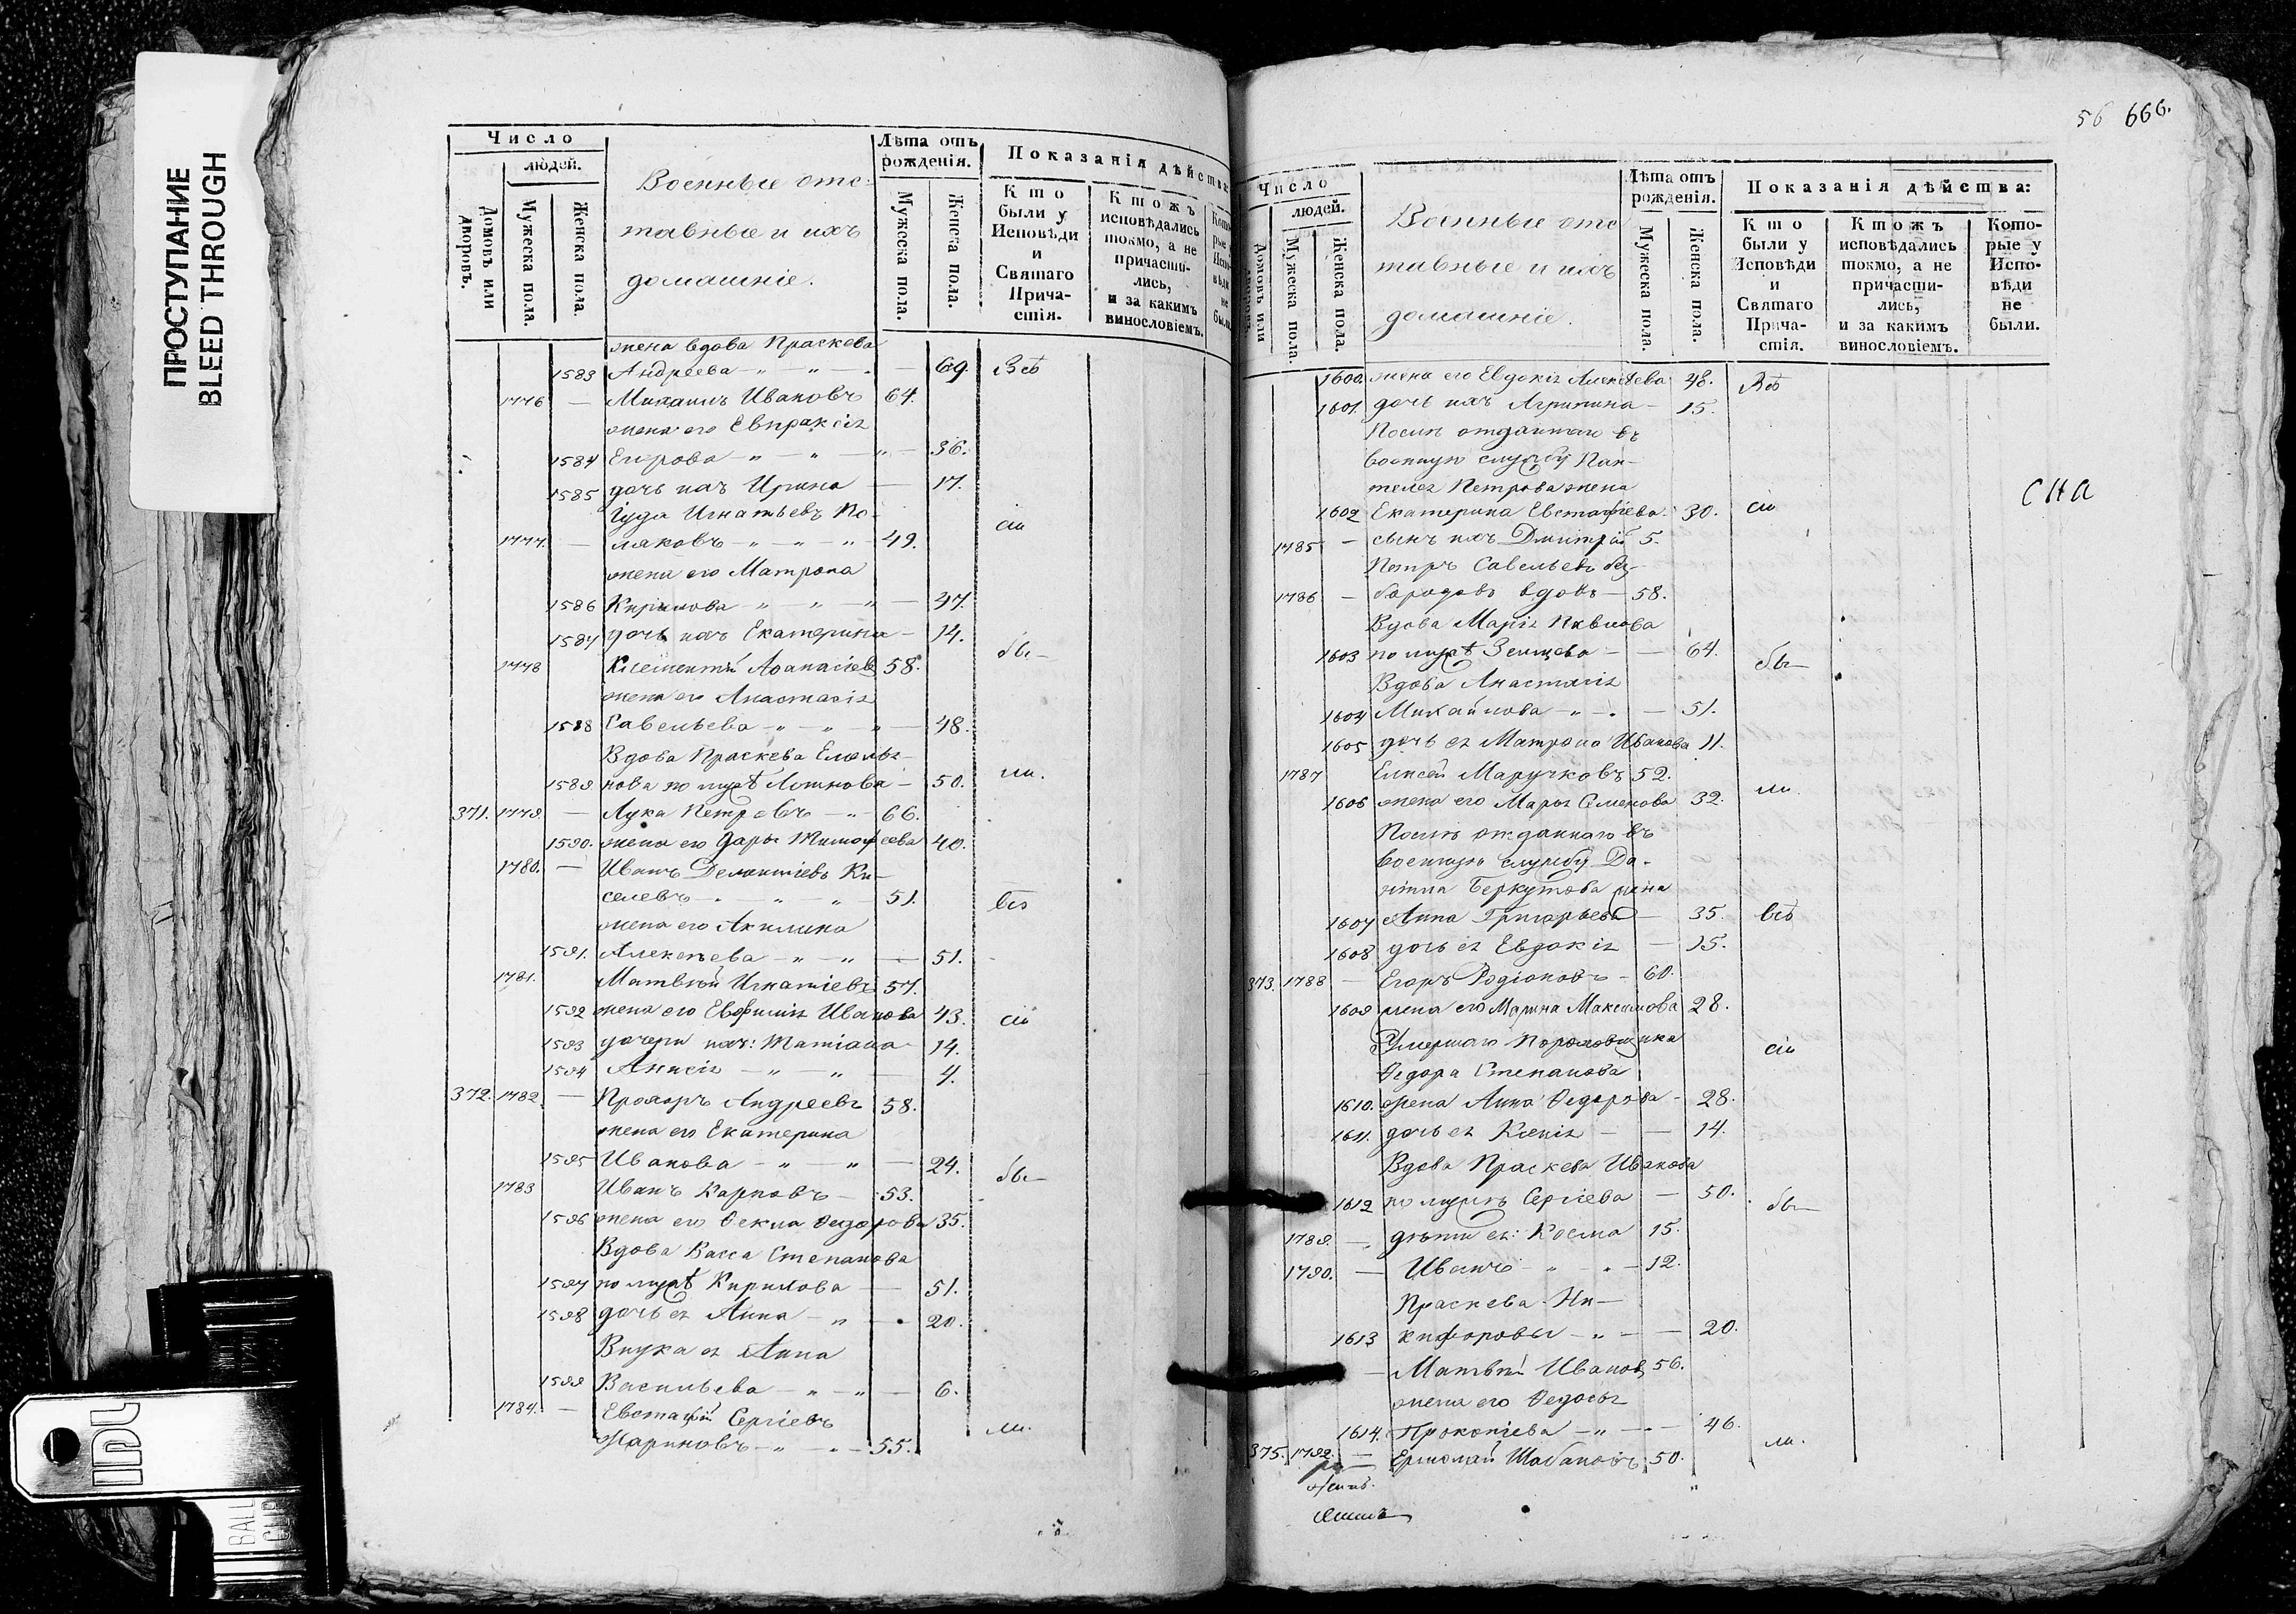 ПРОСТУПАНИЕ
BLEED THROUGH
Число
людей.
Домовъ или дворовъ.
Мужеска пола.
Женска пола.
Военные отс-
тавные и ихъ
домашніе.
Лѣта отъ рожденія.
Мужеска пола.
Женска пола.
Показанія дѣйства:
Кто были у Исповѣди и Святаго Причастія.
Ктожъ исповѣдались токмо, а не причастились, и за какимъ винословіемъ.
жена вдова Праскева
1583 Андреева 69. Всѣ
1776 — Михаилъ Ивановъ 64.
жена его Евпраксія
1584 Егорова 36.
1585 дочь ихъ Ирина 17.
Іуда Игнатьевъ По-
1777. — ляковъ 49. сіи
жена его Матрона
1586 Кирилова 47.
1587 дочь ихъ Екатерина 14.
1778 Климентій Аѳанасіев 58. бы-
жена его Анастасія
1588 Савельева 48.
Вдова Праскева Емелья-
1589 нова по мужѣ 50. ли.
371. 1779. — Лука Петровъ 66.
1590. жена его Дарья Тимофеева 40.
1780. — Иванъ Дементіевъ Ки-
селевъ 51. всѣ
жена его Акилина
1591. Алексѣева 51.
1781. Матвѣй Игнатіевъ 57.
1592 жена его Евфимія Иванова 43. сіи
1593 дочери ихъ: Татіана 14.
1594 Анисія 4.
372. 1782. — Прохоръ Андреевъ 58.
жена его Екатерина
1595 Иванова 24. бы-
1783 Иванъ Карповъ 53.
1596 жена его Ѳекла Ѳедорова 35.
Вдова Васса Степанова
1597 по мужѣ Кирилова 51.
1598 дочь ея Анна 20.
Внука ея Анна
1599 Васильева 6.
1784. — Евстафій Сергіевъ
Жариковъ 55. ли.
56 666.
Число
людей.
Домовъ или дворовъ.
Мужеска пола.
Женска пола.
Военные отс
тавные и ихъ
домашніе.
Лѣта отъ рожденія.
Мужеска пола.
Женска пола.
Показанія дѣйства:
Кто были у Исповѣди и Святаго Причастія.
Ктожъ исповѣдались токмо, а не причастились, и за какимъ винословіемъ.
Которые у Исповѣди не были.
1600. жена его Евдокія Алексѣева 48. Всѣ
1601. дочь ихъ Агрипина 15.
Послѣ отданнаго въ
военную службу Пан-
телея Петрова жена
1602 Екатерина Евстафіева 30. сіи
1785 — сынъ ихъ Дмитрій 5.
Петръ Савельевъ без-
1786 — бородовъ вдовъ 58.
Вдова Марія Павлова
1603 по мужѣ Земцова 64. бы-
Вдова Анастасія
1604 Михайлова 51.
1605 дочь ея Матрона Иванова 11.
1787 Елисей Маручковъ 52.
1606 жена его Марья Семенова 32. ли.
Послѣ отданнаго въ
военную службу Да-
ніила Беркутова жена
1607 Анна Григорьева 35. всѣ
1608 дочь ея Евдокія 15.
373. 1788 — Егоръ Родіоновъ 60.
1609 жена его Марина Максимова 28.
Умершаго Пороховщика
Ѳедора Степанова сіи
1610. жена Анна Ѳедорова 28.
1611. дочь ея Ксенія 14.
Вдова Праскева Иванова
1612 по мужѣ Сергіева 50. бы-
1789. — дѣти ея: Косма 15.
1790. — Иванъ 12.
Праскева Ни-
1613 кифоровы 20.
— Матвѣй Иванов 56.
жена его Ѳедосья
1614. Прокопіева 46.
375. 1792. — Ермолай Шабановъ 50. ли.
сна
IDL